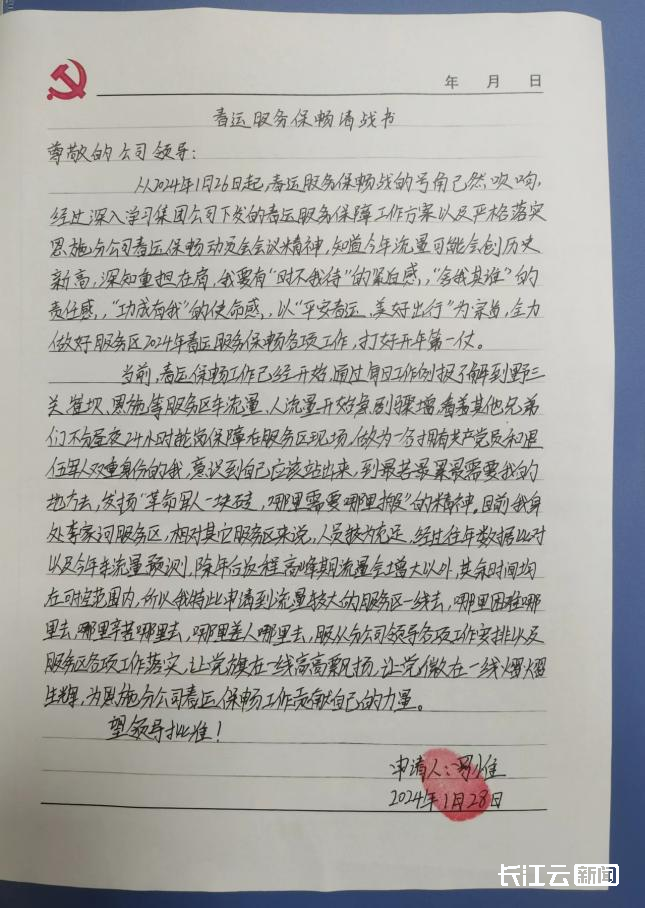 年 月 日
春运服务保畅请战书
尊敬的公司领导:
从2024年1月26日起,春运服务保畅战的号角已然吹响,
经过深入学习集团公司下发的春运服务保障工作方案以及严格落实
恩施分公司春运保畅动员会会议精神,知道今年流量可能会创历史
新高,深知重担在肩,我要有“时不我待”的紧迫感,,“舍我其谁”的
责任感,,“功成有我”的使命感,,以“平安春运、美好出行”为宗旨,全力
做好服务区2024年春运服务保畅各项工作,打好开年第一仗。
当前,春运保畅工作已经开始,通过每日工作例报了解到野三
关、崔坝、恩施等服务区车流量、人流量开始急剧骤增,看着其他兄弟
们不分昼夜24小时轮岗保障在服务区现场,做为一名拥有共产党员和退
伍军人双重身份的我,意识到自己应该站出来,到最苦最累最需要我的
地方去,发扬“革命军人一块砖,哪里需要哪里搬”的精神。目前我身
处李家河服务区,相对其它服务区来说,人员较为充足,经过往年数据比对
以及今年车流量预测,除年后返程高峰期流量会增大以外,其余时间均
在可控范围内,所以我特此申请到流量较大的服务区一线去,哪里困难哪
里去,哪里辛苦哪里去,哪里差人哪里去,服从分公司领导各项工作安排以及
服务区各项工作落实,让党旗在一线高高飘扬,让党徽在一线熠熠
生辉,为恩施分公司春运保畅工作贡献自己的力量。
望领导批准!
申请人:
2024年1月28日
长江云新闻